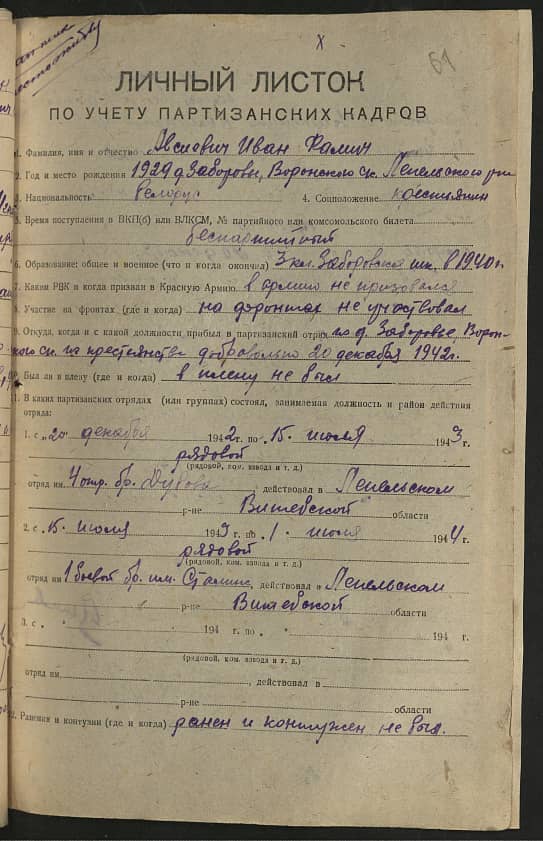 х
61
ЛИЧНЫЙ ЛИСТОК
ПО УЧЕТУ ПАРТИЗАНСКИХ КАДРОВ
1. Фамилия, имя и отчество Авсиевич Иван Фомич
2. Год и место рождения 1929 д. Заборовье, Воронского с/с. Лепельского р-на
3. Национальность Белорус 4. Соцположение крестьянин
5. Время поступления в ВКП(б) или ВЛКСМ, № партийного или комсомольского билета
беспартийный
6. Образование: общее и военное (что и когда окончил) 3 кл. Заборовская шк. в 1940 г.
7. Каким РВК и когда призван в Красную Армию в армию не призовался
8. Участие на фронтах (где и когда) на фронтах не участвовал
9. Откуда, когда и с какой должности прибыл в партизанский отряд из д. Заборовье, Ворон-
ского с/с. из крестьянства добровольно 20 декабря 1942 г.
Был ли в плену (где и когда) в плену не был
1. В каких партизанских отрядах (или группах) состоял, занимаемая должность и район действия
отряда:
1. с „20" декабря 1942 г. по 15. июля 1943 г.
рядовой
(рядовой, ком. взвода и т. д.)
отряд им. 4 отр. бр. Дубова, действовал в Лепельском
р-не Витебской области
2. с 15. июля 1943 г. по 1. июля 1944 г.
рядовой
(рядовой, ком. взвода и т. д.)
отряд им. 1 боевой бр. им. Сталина, действовал в Лепельском
р-не Витебской области
3. с „ " 194 г. по „ " 194 г.
(рядовой, ком. взвода и т. д.)
отряд им. , действовал в
р-не области
2. Ранения и контузии (где и когда) ранен и контужен не был.